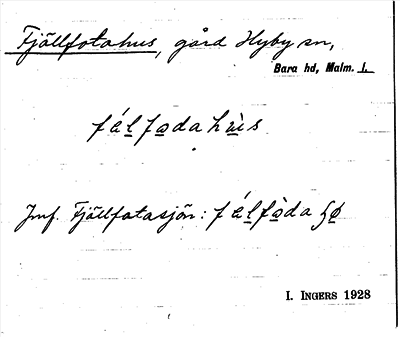 Fjällfotahus, gård Hyby sn,
Bara hd, Malm. l.
fálfọdahùs
Jmf. Fjällfotasjön: fálfòda
I. INGERS 1928